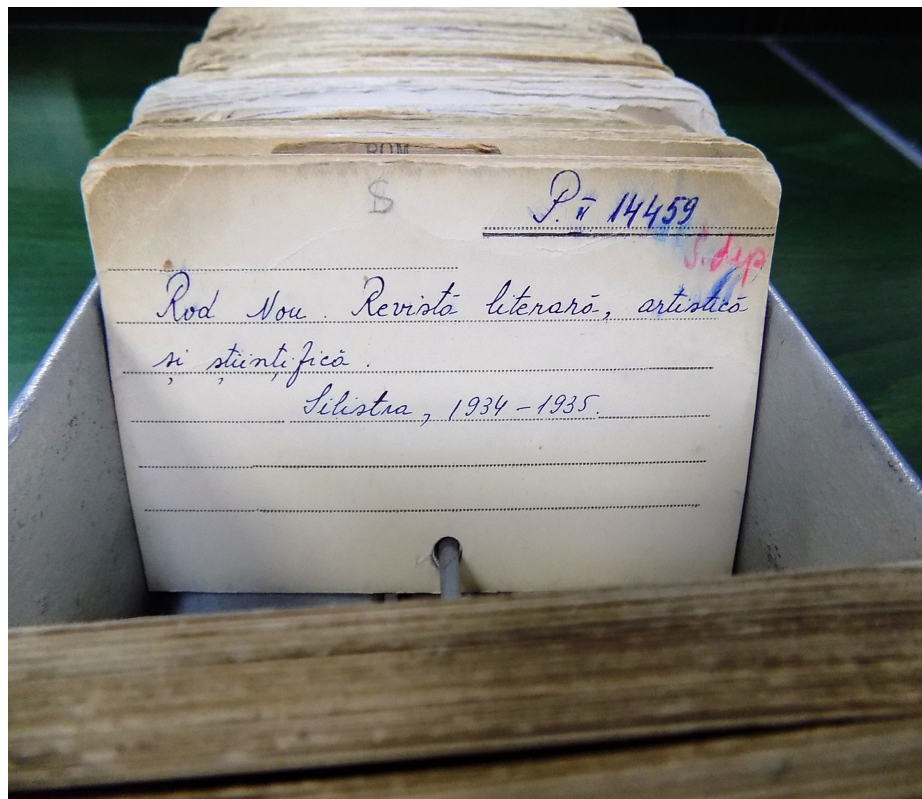 ROM
S
P. II 14459
S. dep
Rod Nou. Revistă literară, artistică
și științifică.
Silistra, 1934-1935.